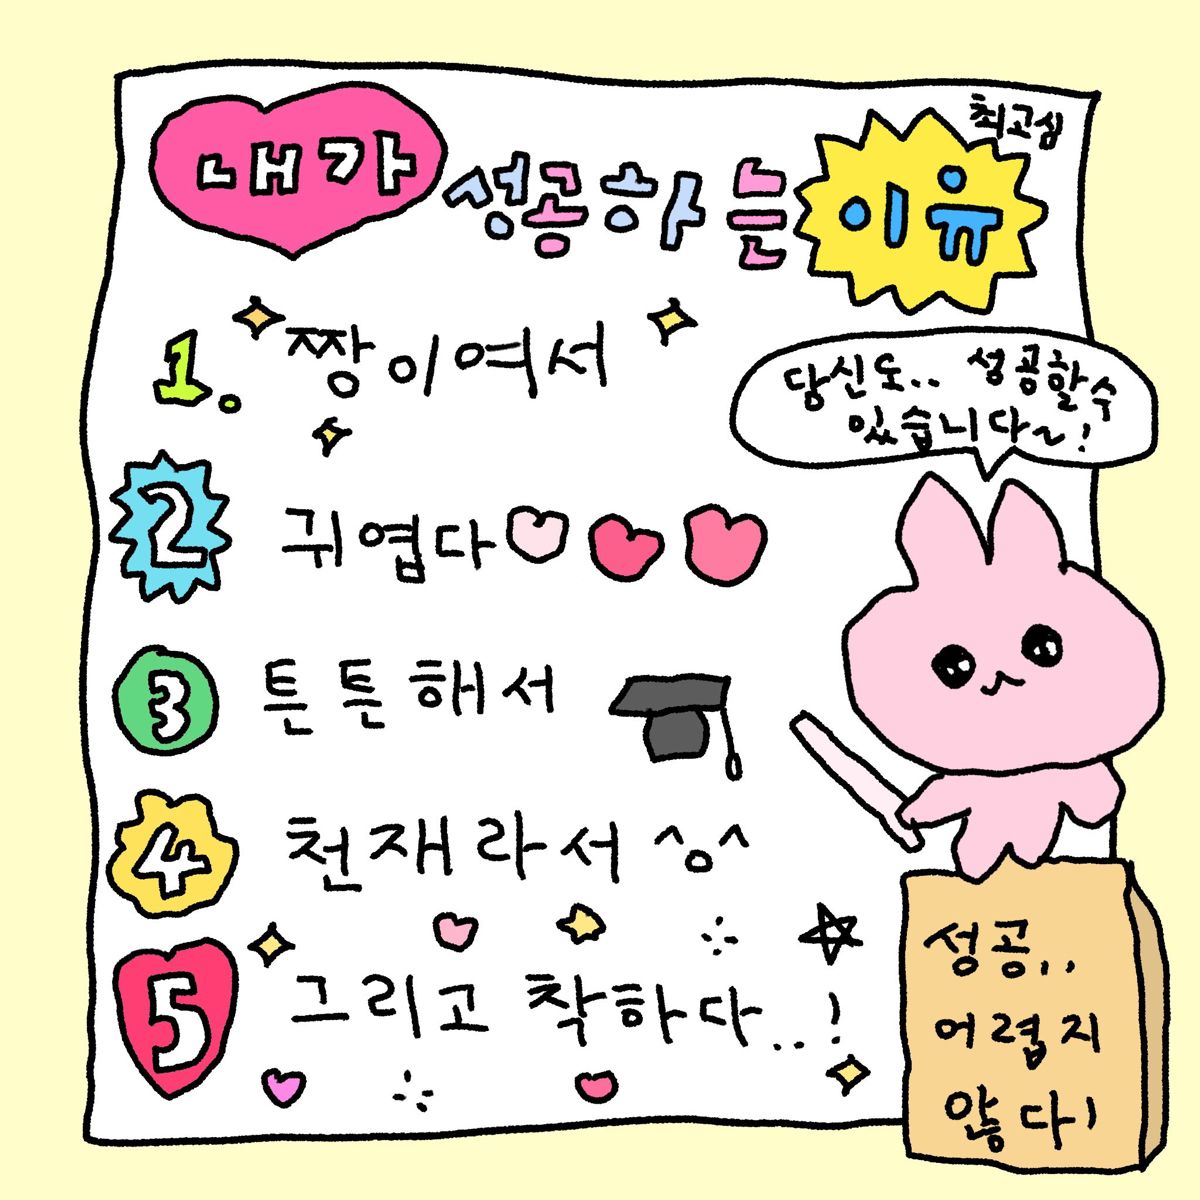 최고심
내가 성공하는 이유
1. 짱이여서
2 귀엽다
3 튼튼해서
4 천재라서 ^o^
5 그리고 착하다...!
당신도.. 성공할수
있습니다~!
성공,,
어렵지
않다!